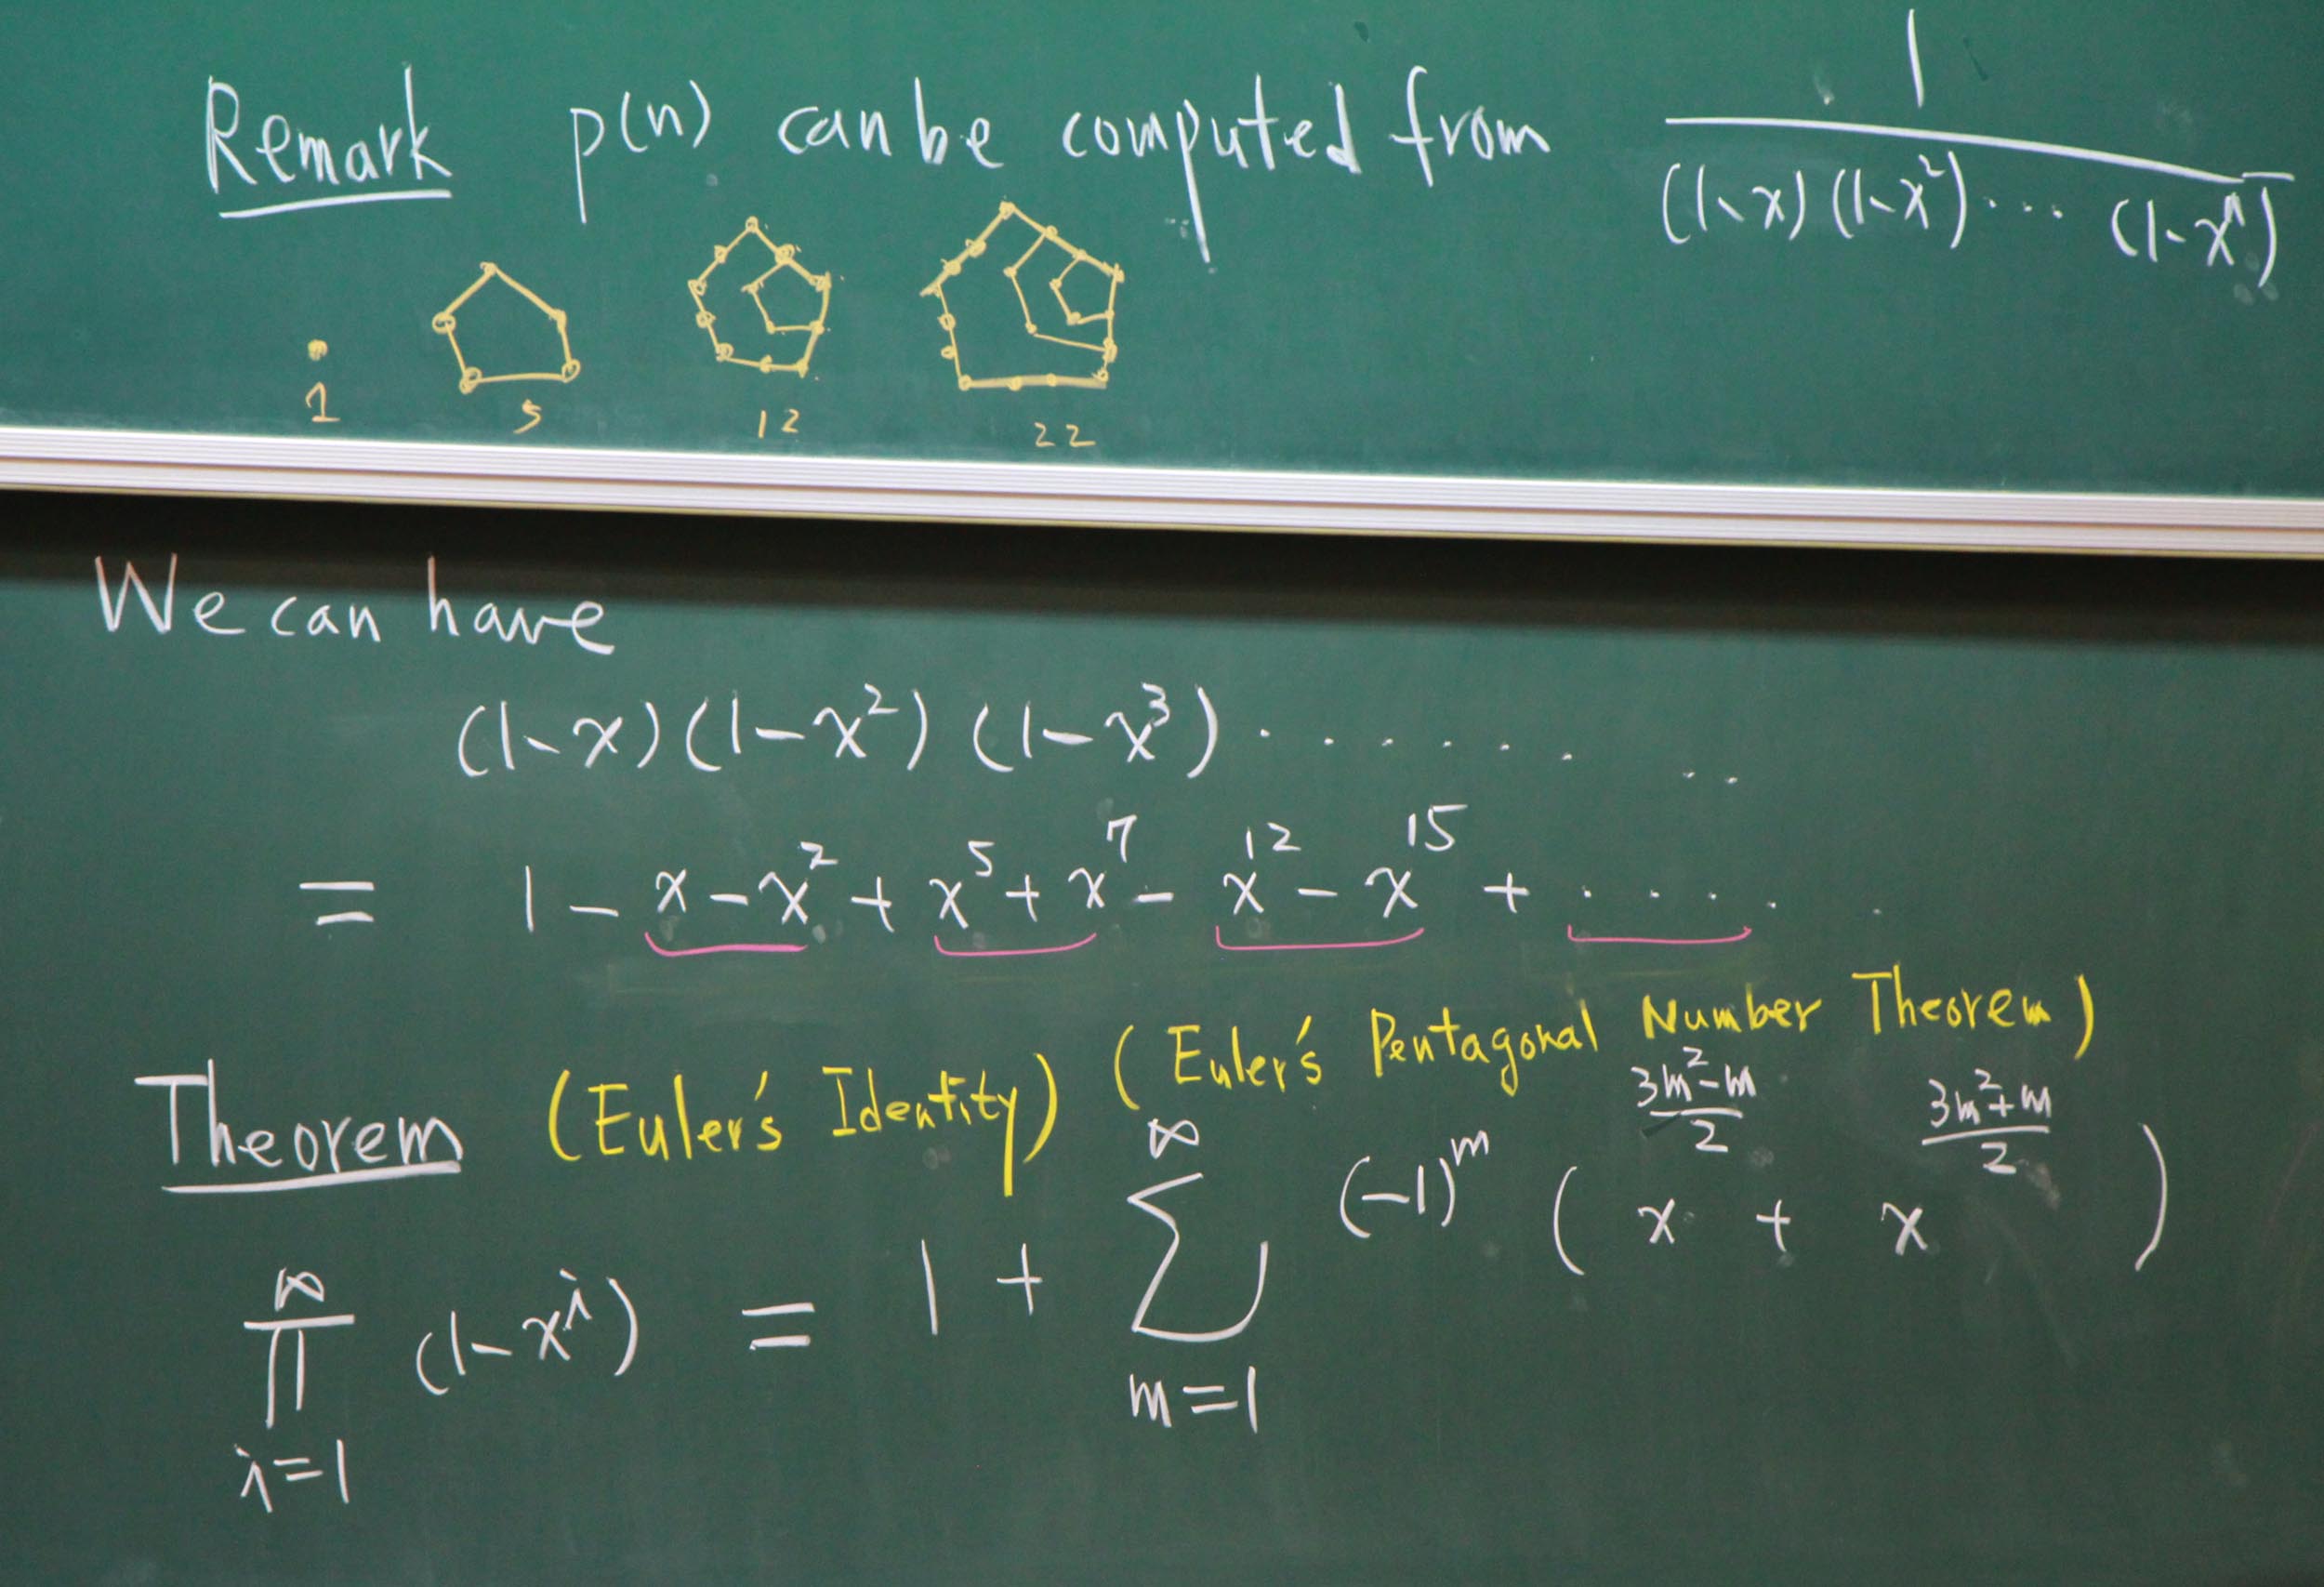 Remark p(n) can be computed from 1/((1-x)(1-x²)⋯(1-xⁿ))
1 5 12 22
We can have
(1-x)(1-x²)(1-x³)⋯⋯⋯
= 1 - x - x² + x⁵ + x⁷ - x¹² - x¹⁵ + ⋯⋯
Theorem (Euler's Identity) (Euler's Pentagonal Number Theorem)
∏_{i=1}^{∞} (1-xⁱ) = 1 + ∑_{m=1}^{∞} (-1)^m ( x^{(3m²-m)/2} + x^{(3m²+m)/2} )